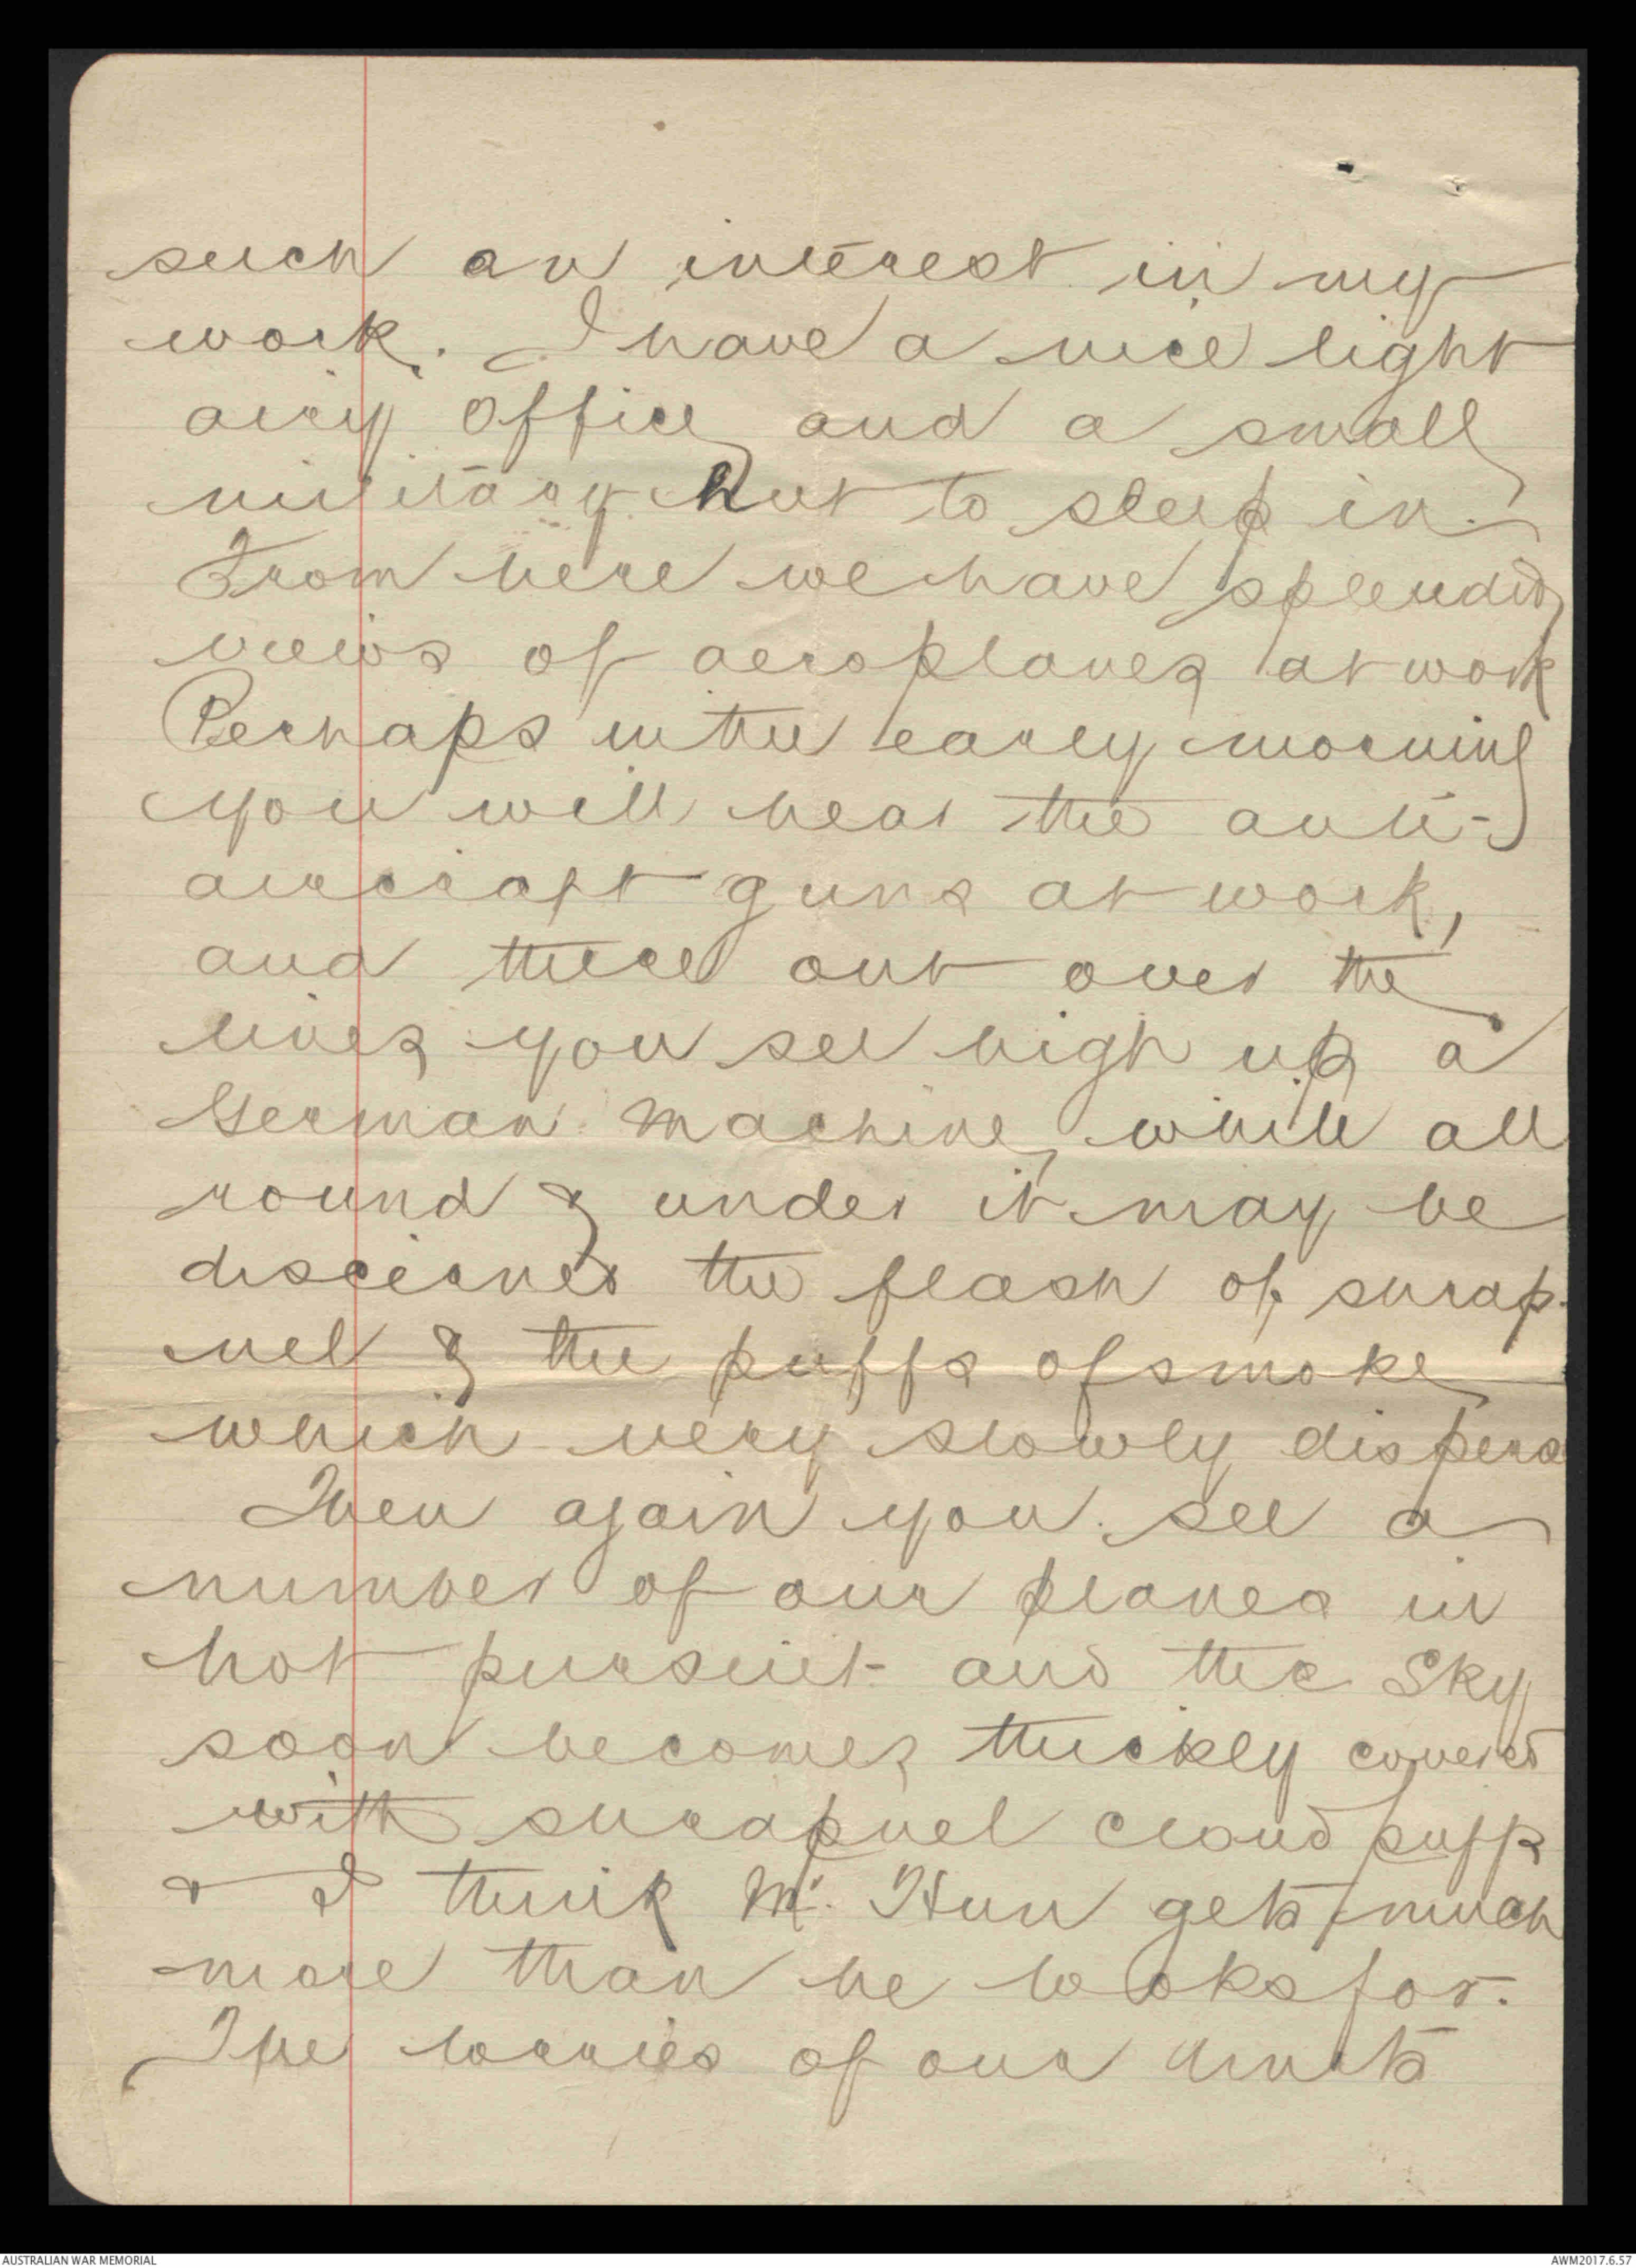 such an interest in my
work. I have a nice light
airy office and a small
military hut to sleep in.
From here we have splendid
views of aeroplanes at work
Perhaps in the early morning
you will hear the anti-
aircraft guns at work,
and there out over the
lines you see high up a
German machine, while all
round & under it may be
discerned the flash of shrap-
nel & the puffs of smoke
which very slowly disperse
Then again you see a
number of our planes in
hot pursuit and the sky
soon becomes thickly covered
with shrapnel cloud puffs
& I think Mr. Hun gets much
more than he looks for.
The lorries of our units
AUSTRALIAN WAR MEMORIAL
AWM2017.6.57